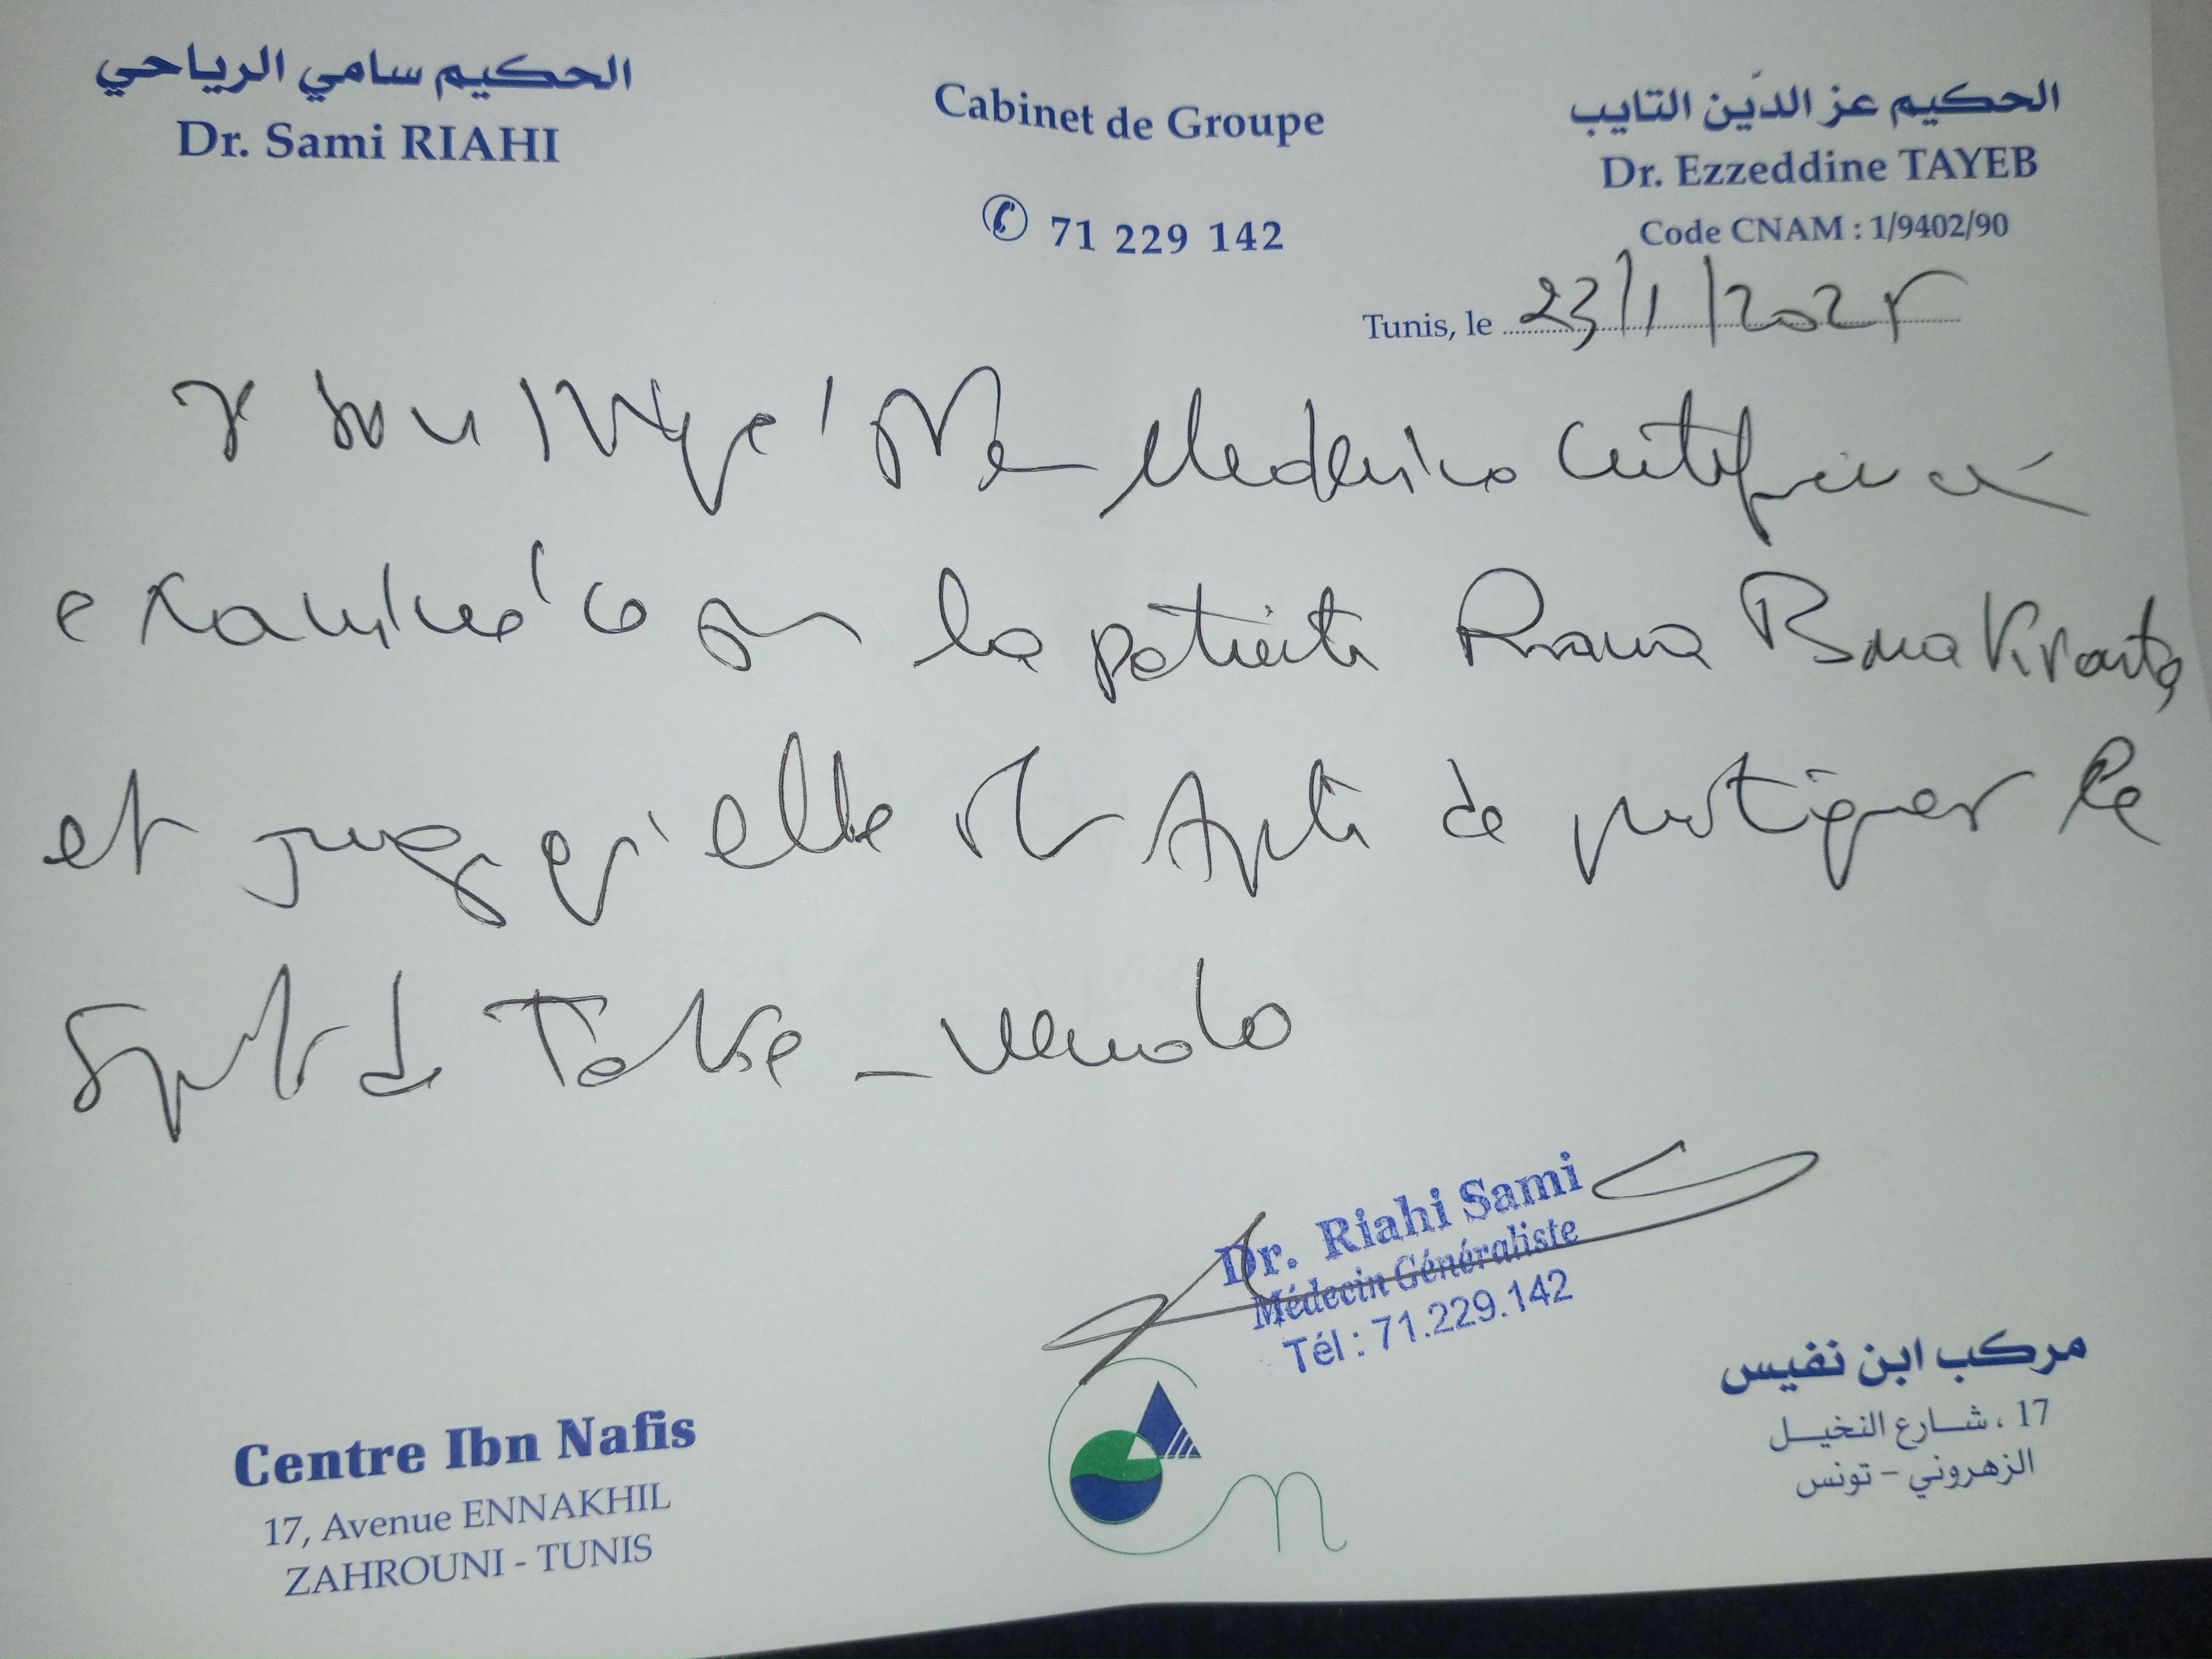 الحكيم سامي الرياحي
Dr. Sami RIAHI
Cabinet de Groupe
✆ 71 229 142
الحكيم عز الدّين التايب
Dr. Ezzeddine TAYEB
Code CNAM : 1/9402/90
Tunis, le 23/1/2025
Je soussigné Médecin certifie avoir
examiné ce jour la patiente
et juge qu'elle est Apte de pratiquer le
Sport de
Dr. Riahi Sami
Médecin Généraliste
Tél : 71.229.142
Centre Ibn Nafis
17, Avenue ENNAKHIL
ZAHROUNI - TUNIS
مركب ابن نفيس
17 ، شارع النخيل
الزهروني - تونس